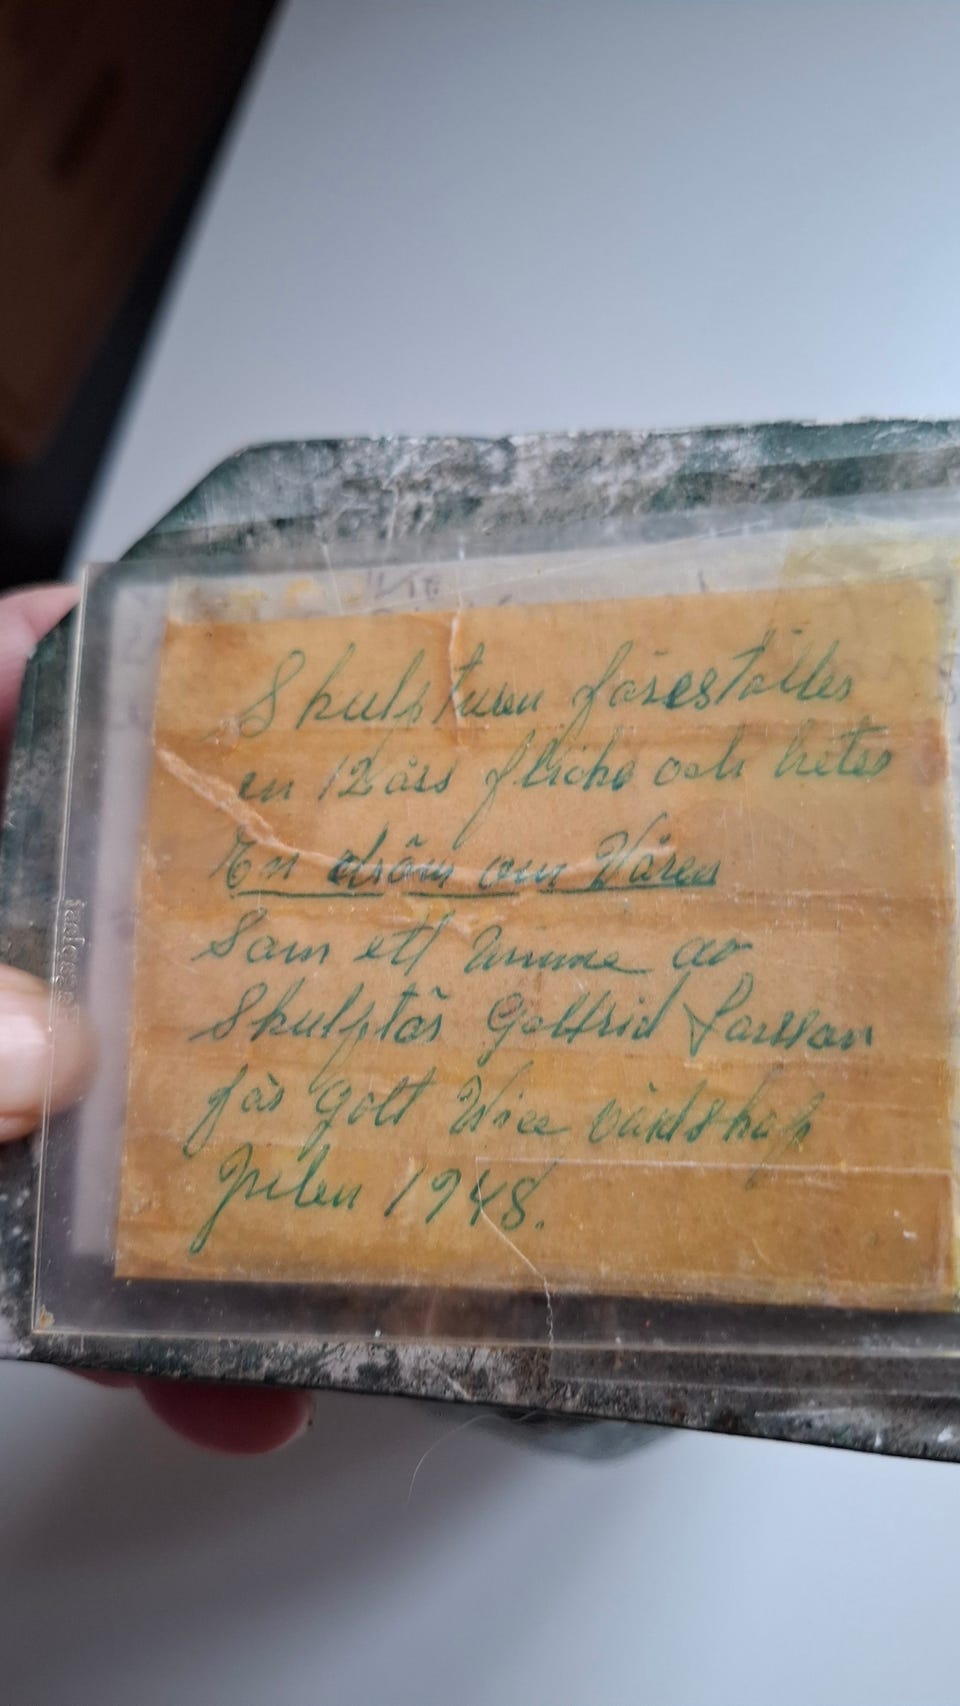 Skulpturen föreställer
en 12 års flicka och heter
En dröm om Våren
Som ett minne av
Skulptör Gottfrid Larsson
för gott Wice värdskap
Julen 1948.